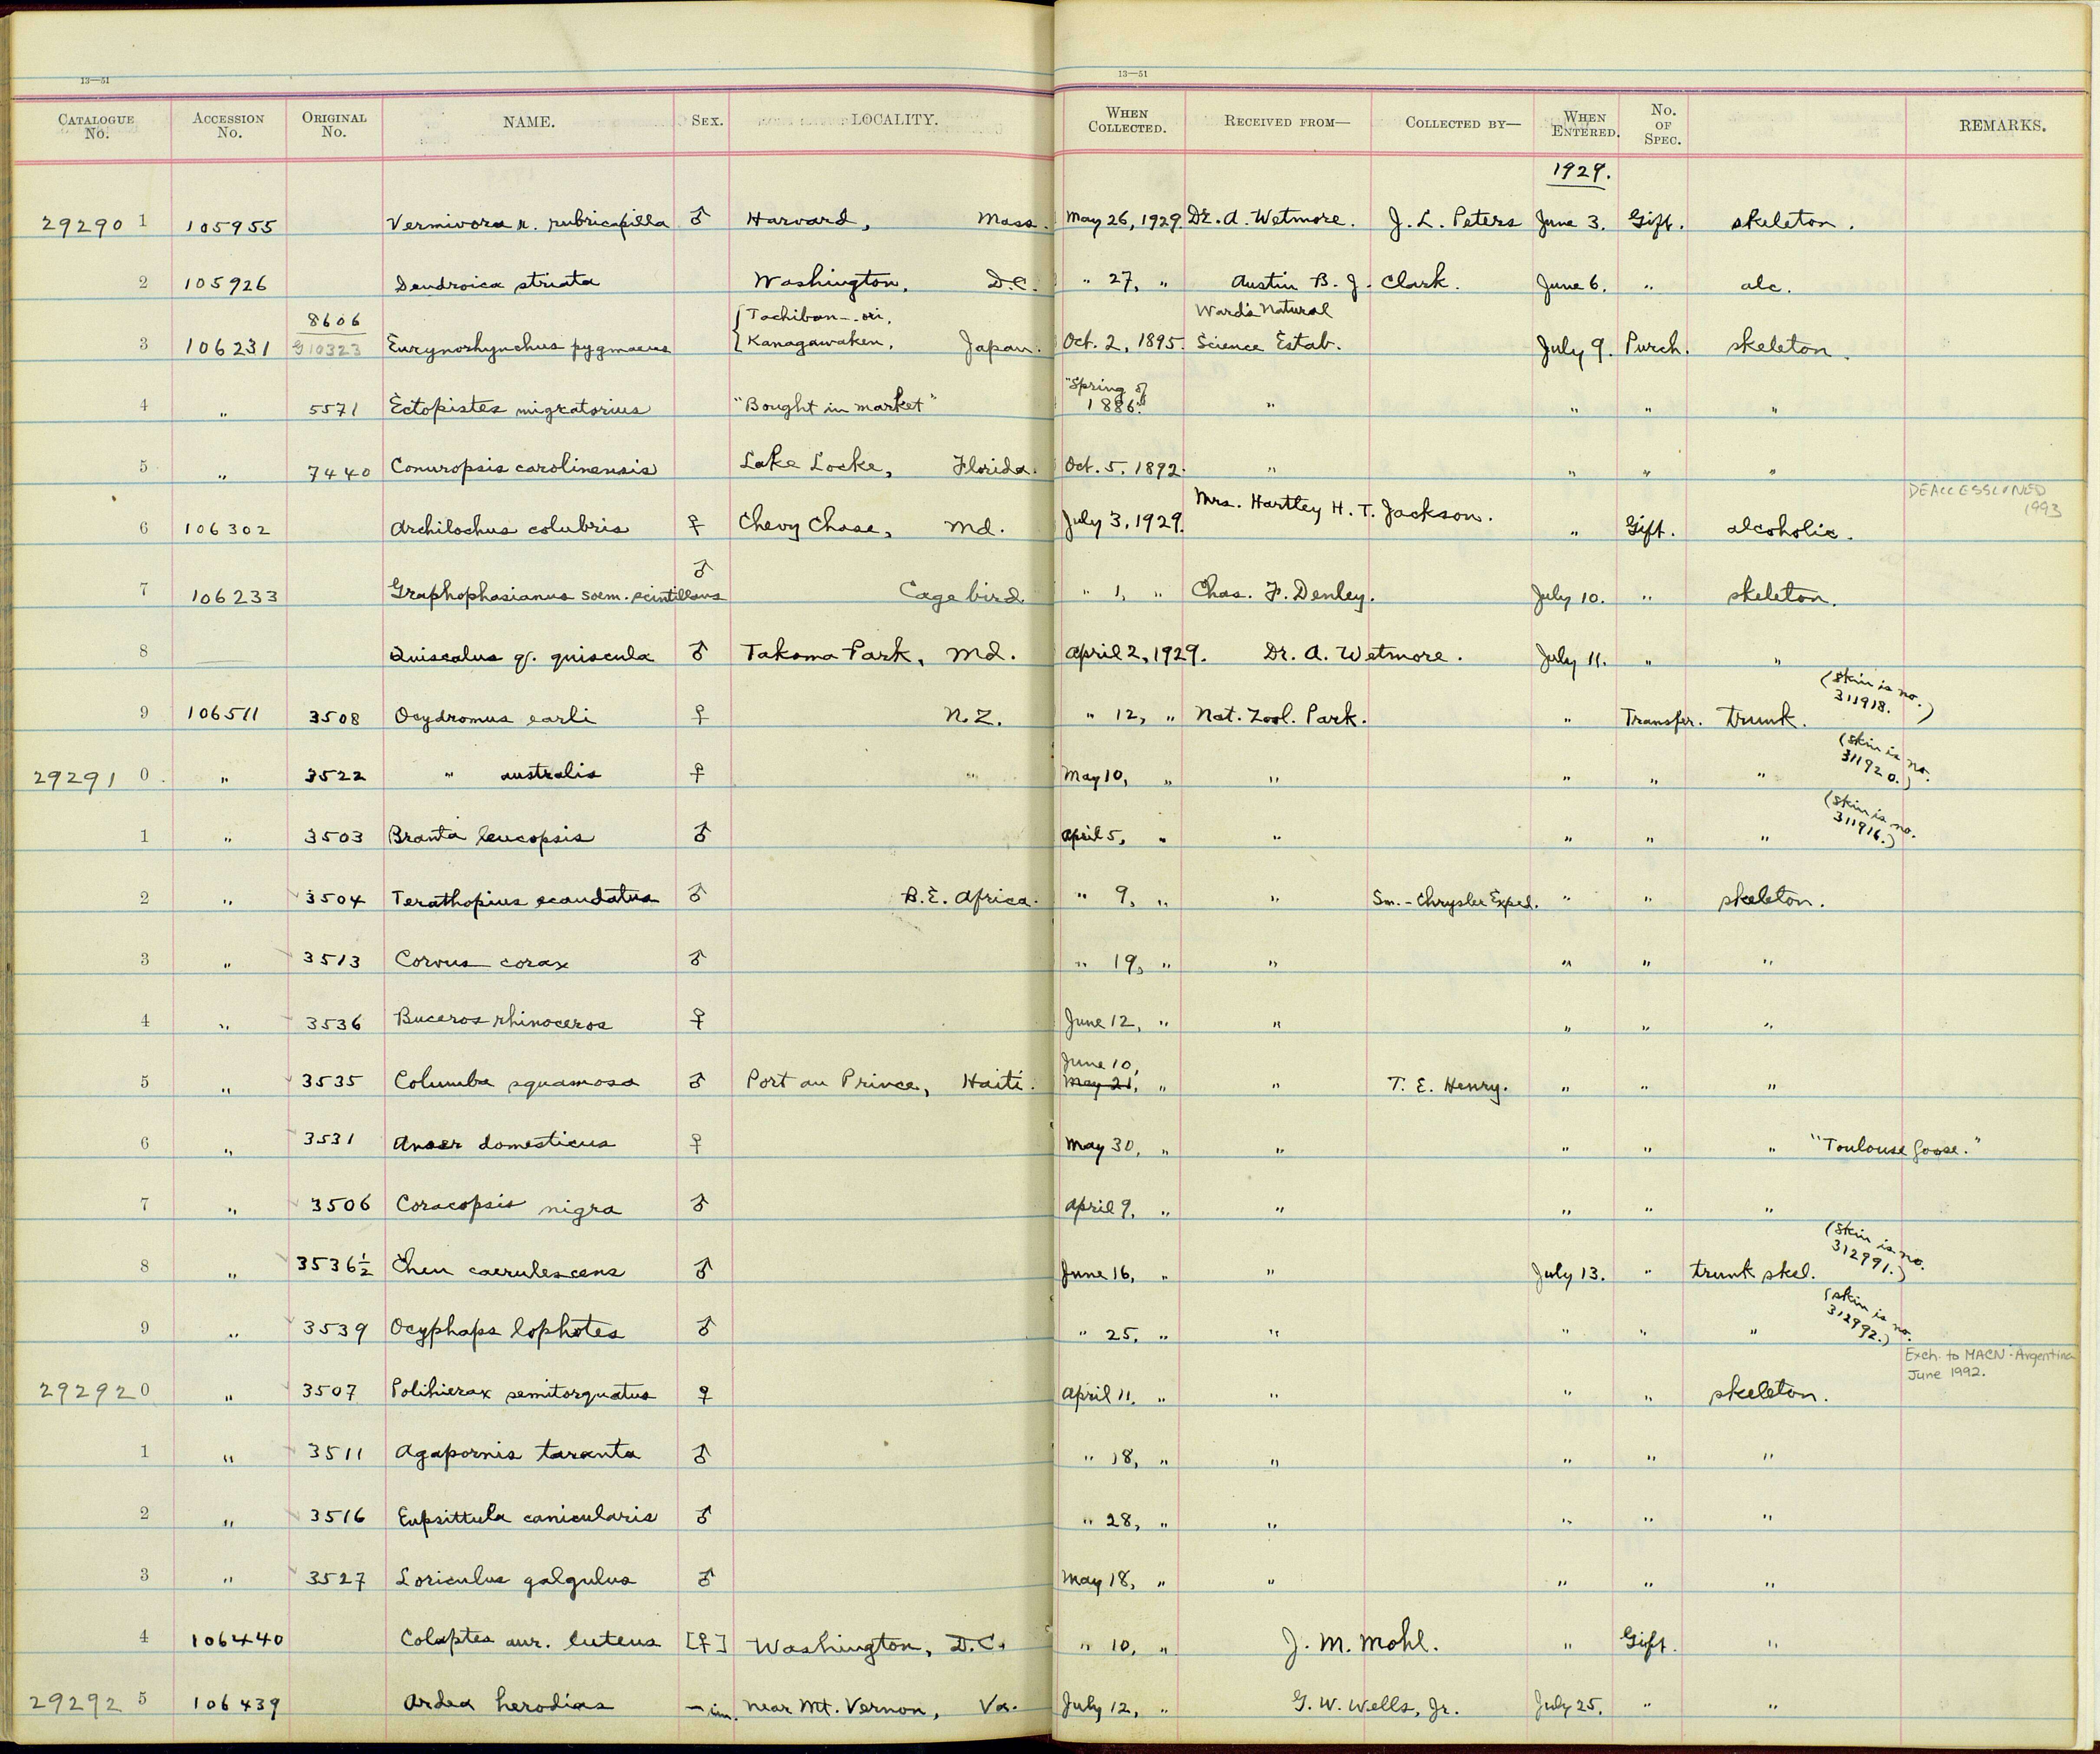 13—51 13—51
CATALOGUE No. ACCESSION No. ORIGINAL No. NAME. SEX. LOCALITY. WHEN COLLECTED. RECEIVED FROM— COLLECTED BY— WHEN ENTERED. No. OF SPEC. REMARKS.
1929.
29290 1 105955 Vermivora r. rubricapilla ♂ Harvard, Mass. May 26, 1929. Dr. A. Wetmore. J. L. Peters June 3. Gift. skeleton.
2 105926 Dendroica striata Washington, D.C. " 27, " Austin B. J. Clark. June 6. " alc.
8606 { Tachiban--ori, Ward's Natural
3 106231 G10323 Eurynorhynchus pygmaeus Kanagawaken, Japan. Oct. 2, 1895. Science Estab. July 9. Purch. skeleton.
4 " 5571 Ectopistes migratorius "Bought in market" "Spring of 1886." " " " "
5 " 7440 Conuropsis carolinensis Lake Locke, Florida. Oct. 5, 1892. " " " "
DEACCESSIONED 1993
6 106302 Archilochus colubris ♀ Chevy Chase, Md. July 3, 1929. Mrs. Hartley H. T. Jackson. " Gift. alcoholic.
7 106233 Graphophasianus soem. scintillans ♂ Cage bird " 1, " Chas. F. Denley. July 10. " skeleton.
8 — Quiscalus q. quiscula ♂ Takoma Park, Md. April 2, 1929. Dr. A. Wetmore. July 11. " "
9 106511 3508 Ocydromus earli ♀ N.Z. " 12, " Nat. Zool. Park. " Transfer. trunk. (skin is no. 311918.)
29291 0 " 3522 " australis ♀ " May 10, " " " " " (skin is no. 311920.)
1 " 3503 Branta leucopsis ♂ April 5, " " " " " (skin is no. 311916.)
2 " 3504 Terathopius ecaudatus ♂ B.E. Africa. " 9, " " Sm.-Chrysler Exped. " " skeleton.
3 " 3513 Corvus corax ♂ " 19, " " " " "
4 " 3536 Buceros rhinoceros ♀ June 12, " " " " "
June 10,
5 " 3535 Columba squamosa ♂ Port au Prince, Haiti. May 21, " " T. E. Henry. " " "
6 " 3531 Anser domesticus ♀ May 30, " " " " " "Toulouse Goose."
7 " 3506 Coracopsis nigra ♂ April 9, " " " " "
8 " 3536½ Chen caerulescens ♂ June 16, " " July 13. " trunk skel. (skin is no. 312991.)
9 " 3539 Ocyphaps lophotes ♂ " 25, " " " " " (skin is no. 312992.)
Exch. to MACN-Argentina June 1992.
29292 0 " 3507 Polihierax semitorquatus ♀ April 11, " " " " skeleton.
1 " 3511 Agapornis taranta ♂ " 18, " " " " "
2 " 3516 Eupsittula canicularis ♂ " 28, " " " " "
3 " 3527 Loriculus galgulus ♂ May 18, " " " " "
4 106440 Colaptes aur. luteus [♀] Washington, D.C. " 10, " J. M. Mohl. " Gift. "
29292 5 106439 Ardea herodias — im. near Mt. Vernon, Va. July 12, " G. W. Wells, Jr. July 25. " "